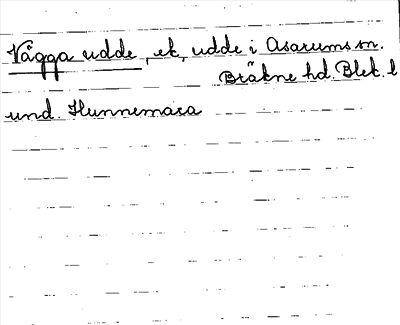 Vågga udde, ek, udde i Asarums sn.
Bräkne hd. Blek. l
und. Hunnemara